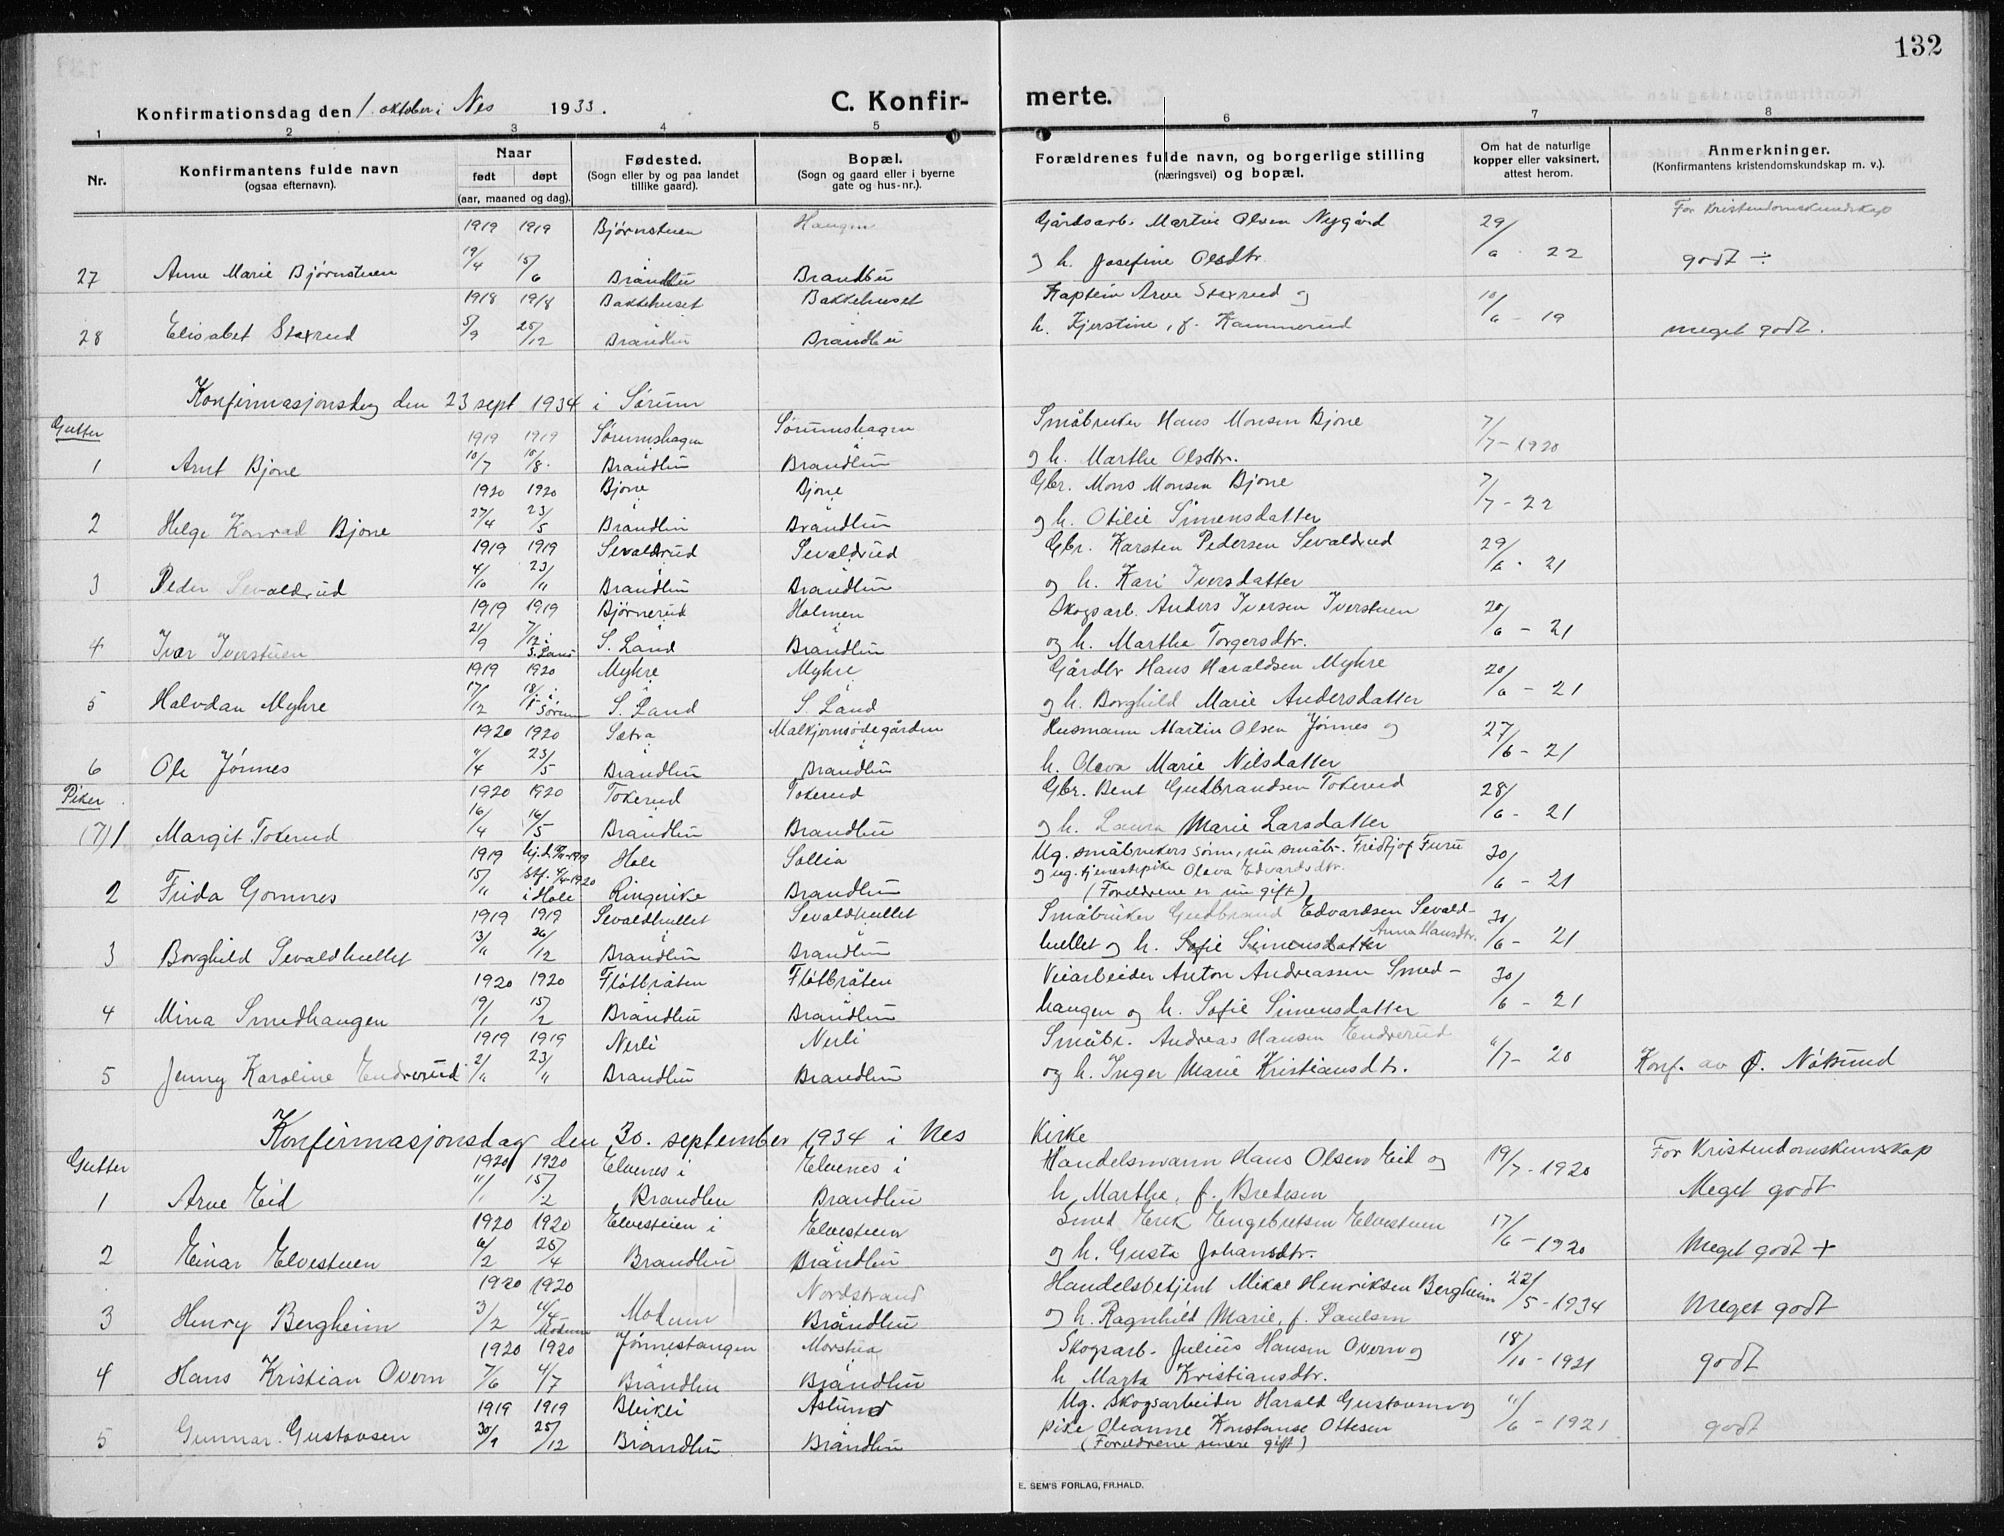 132
Konfirmationsdag den 1. oktober i Nes 1933.
C. Konfir- merte.
1 2 3 4 5 6 7 8
Nr.
Konfirmantens fulde navn
(ogsaa efternavn).
Naar
født døpt
(aar, maaned og dag).
Fødested.
(Sogn eller by og paa landet
tillike gaard).
Bopæl.
(Sogn og gaard eller i byerne
gate og hus-nr.).
Forældrenes fulde navn, og borgerlige stilling
(næringsvei) og bopæl.
Om hat de naturlige
kopper eller vaksinert,
attest herom.
Anmerkninger.
(Konfirmantens kristendomskundskap m. v.).
1919 1919 Bjørnstuen Haugen Gårdsarb. Martin Olsen Nygård 29/ For Kristendomskundskap
27 Anne Marie Bjørnstuen 19/4 15/6 Brandbu Brandbu og h. Josefine Olsdtr. 6 - 22 godt ÷
1918 1918 Bakkehuset Bakkehuset Kaptein Arve Staxrud og 10/
28 Elisabet Staxrud 5/9 25/12 Brandbu Brandbu h. Kjerstine, f. Kammerud 6 - 19 meget godt.
Konfirmasjonsdag den 23 sept 1934 i Sørum
Gutter
1919 1919 Sørumshagen Sørumshagen Småbruker Hans Monsen Bjone 7/
1 Arnt Bjone 10/7 10/8. i Brandbu i Brandbu og h. Marthe Olsdtr. 7 - 1920
1920 1920 Bjone Bjone Gbr. Mons Monsen Bjone 7/
2 Helge Konrad Bjone 27/4 23/5 i Brandbu i Brandbu og h. Otilie Simensdatter 7 - 22
1919 1919 Sevaldrud Sevaldrud Gbr. Karsten Pedersen Sevaldrud 29/
3 Peder Sevaldrud 4/10 23/11 i Brandbu i Brandbu og h. Kari Iversdatter 6 - 21
1919 1919 Bjørnerud Holmen Skogsarb. Anders Iversen Iverstuen 20/
4 Ivar Iverstuen 21/9 7/12 i S. Land i S. Land i Brandbu og h. Marthe Torgersdtr. 6 - 21
1919 1920 Myhre Myhre Gårdbr Hans Haraldsen Myhre 20/
5 Halvdan Myhre 17/12 18/1 i Sørum i S. Land i S. Land og h. Borghild Marie Andersdatter 6 - 21
1920 1920 Sætra Malkjernsødegården Husmann Martin Olsen Jønnes og 27/
6 Ole Jønnes 11/4 23/5 i Brandbu i Brandbu h. Oleva Marie Nilsdatter 6 - 21
Piker
1920 1920 Tokerud Tokerud Gbr. Bent Gudbrandsen Tokerud 28/
(7) 1 Margit Tokerud 16/4 16/5 i Brandbu i Brandbu og h. Laura Marie Larsdatter 6 - 21
1919 Hole Sollia Ug. småbrukers sønn, nu småbr. Fridtjof Furu 30/
2 Frida Gomnes 15/11 i Hole Ringerike Brandbu og ug. tjenestepike Oleva Edvardsdtr. 6 - 21
(Foreldrene er nu gift)
1919 1919 Sevaldhullet Sevaldhullet Småbruker Gudbrand Edvardsen Sevald- 30/
3 Borghild Sevaldhullet 13/11 26/12 i Brandbu i Brandbu hullet og h. Sofie Simensdatter Anna Hansdtr. 6 - 21
1920 1920 Fløtbråten Fløtbråten Veiarbeider Anton Andreassen Smed- 30/
4 Mina Smedhaugen 19/1 15/2 i Brandbu i Brandbu haugen og h. Sofie Simensdatter 6 - 21
1919 1919 Nerli Nerli Småbr. Andreas Hansen Endrerud
5 Jenny Karoline Endrerud 2/11 23/11 Brandbu Brandbu og h. Inger Marie Kristiansdtr. 11/7 - 20 Konf. av Ø. Nøkund
Konfirmasjonsdag den 30. september 1934 i Nes Kirke
Gutter
1920 1920 Elvenes i Elvenes i Handelsmann Hans Olsen Eid og 19/7 - 1920 For Kristendomskunskap
1 Arve Eid 11/1 15/2 Brandbu Brandbu h Marthe, f. Bredesen Meget godt
1920 1920 Elvestuen i Elvestuen Smed Erik Engebretsen Elvestuen 17/
2 Einar Elvestuen 6/2 25/4 Brandbu i Brandbu og h. Gusta Johansdtr. 6 - 1920 Meget godt +
1920 1920 Nordstrand Handelsbetjent Mikal Henriksen Bergheim 22/
3 Henry Bergheim 3/2 11/4 Modum Modum i Brandbu og h. Ragnhild Marie, f. Paulsen 5 - 1934 Meget godt
1920 1920 Jønnestangen Morstua Skogsarb. Julius Hansen Overn og 18/
4 Hans Kristian Overn 7/6 4/7 i Brandbu i Brandbu h Marta Kristiansdtr. 10 - 1921 godt
1919 1919 Bleikli Åslund Ug. Skogsarbeider Harald Gustavsen og 11/
5 Gunnar Gustavsen 30/9 25/12 i Brandbu i Brandbu pike Oleanne Konstanse Ottesen 6 - 1921 godt
(Foreldrene senere gift)
E. SEM'S FORLAG, FR.HALD.